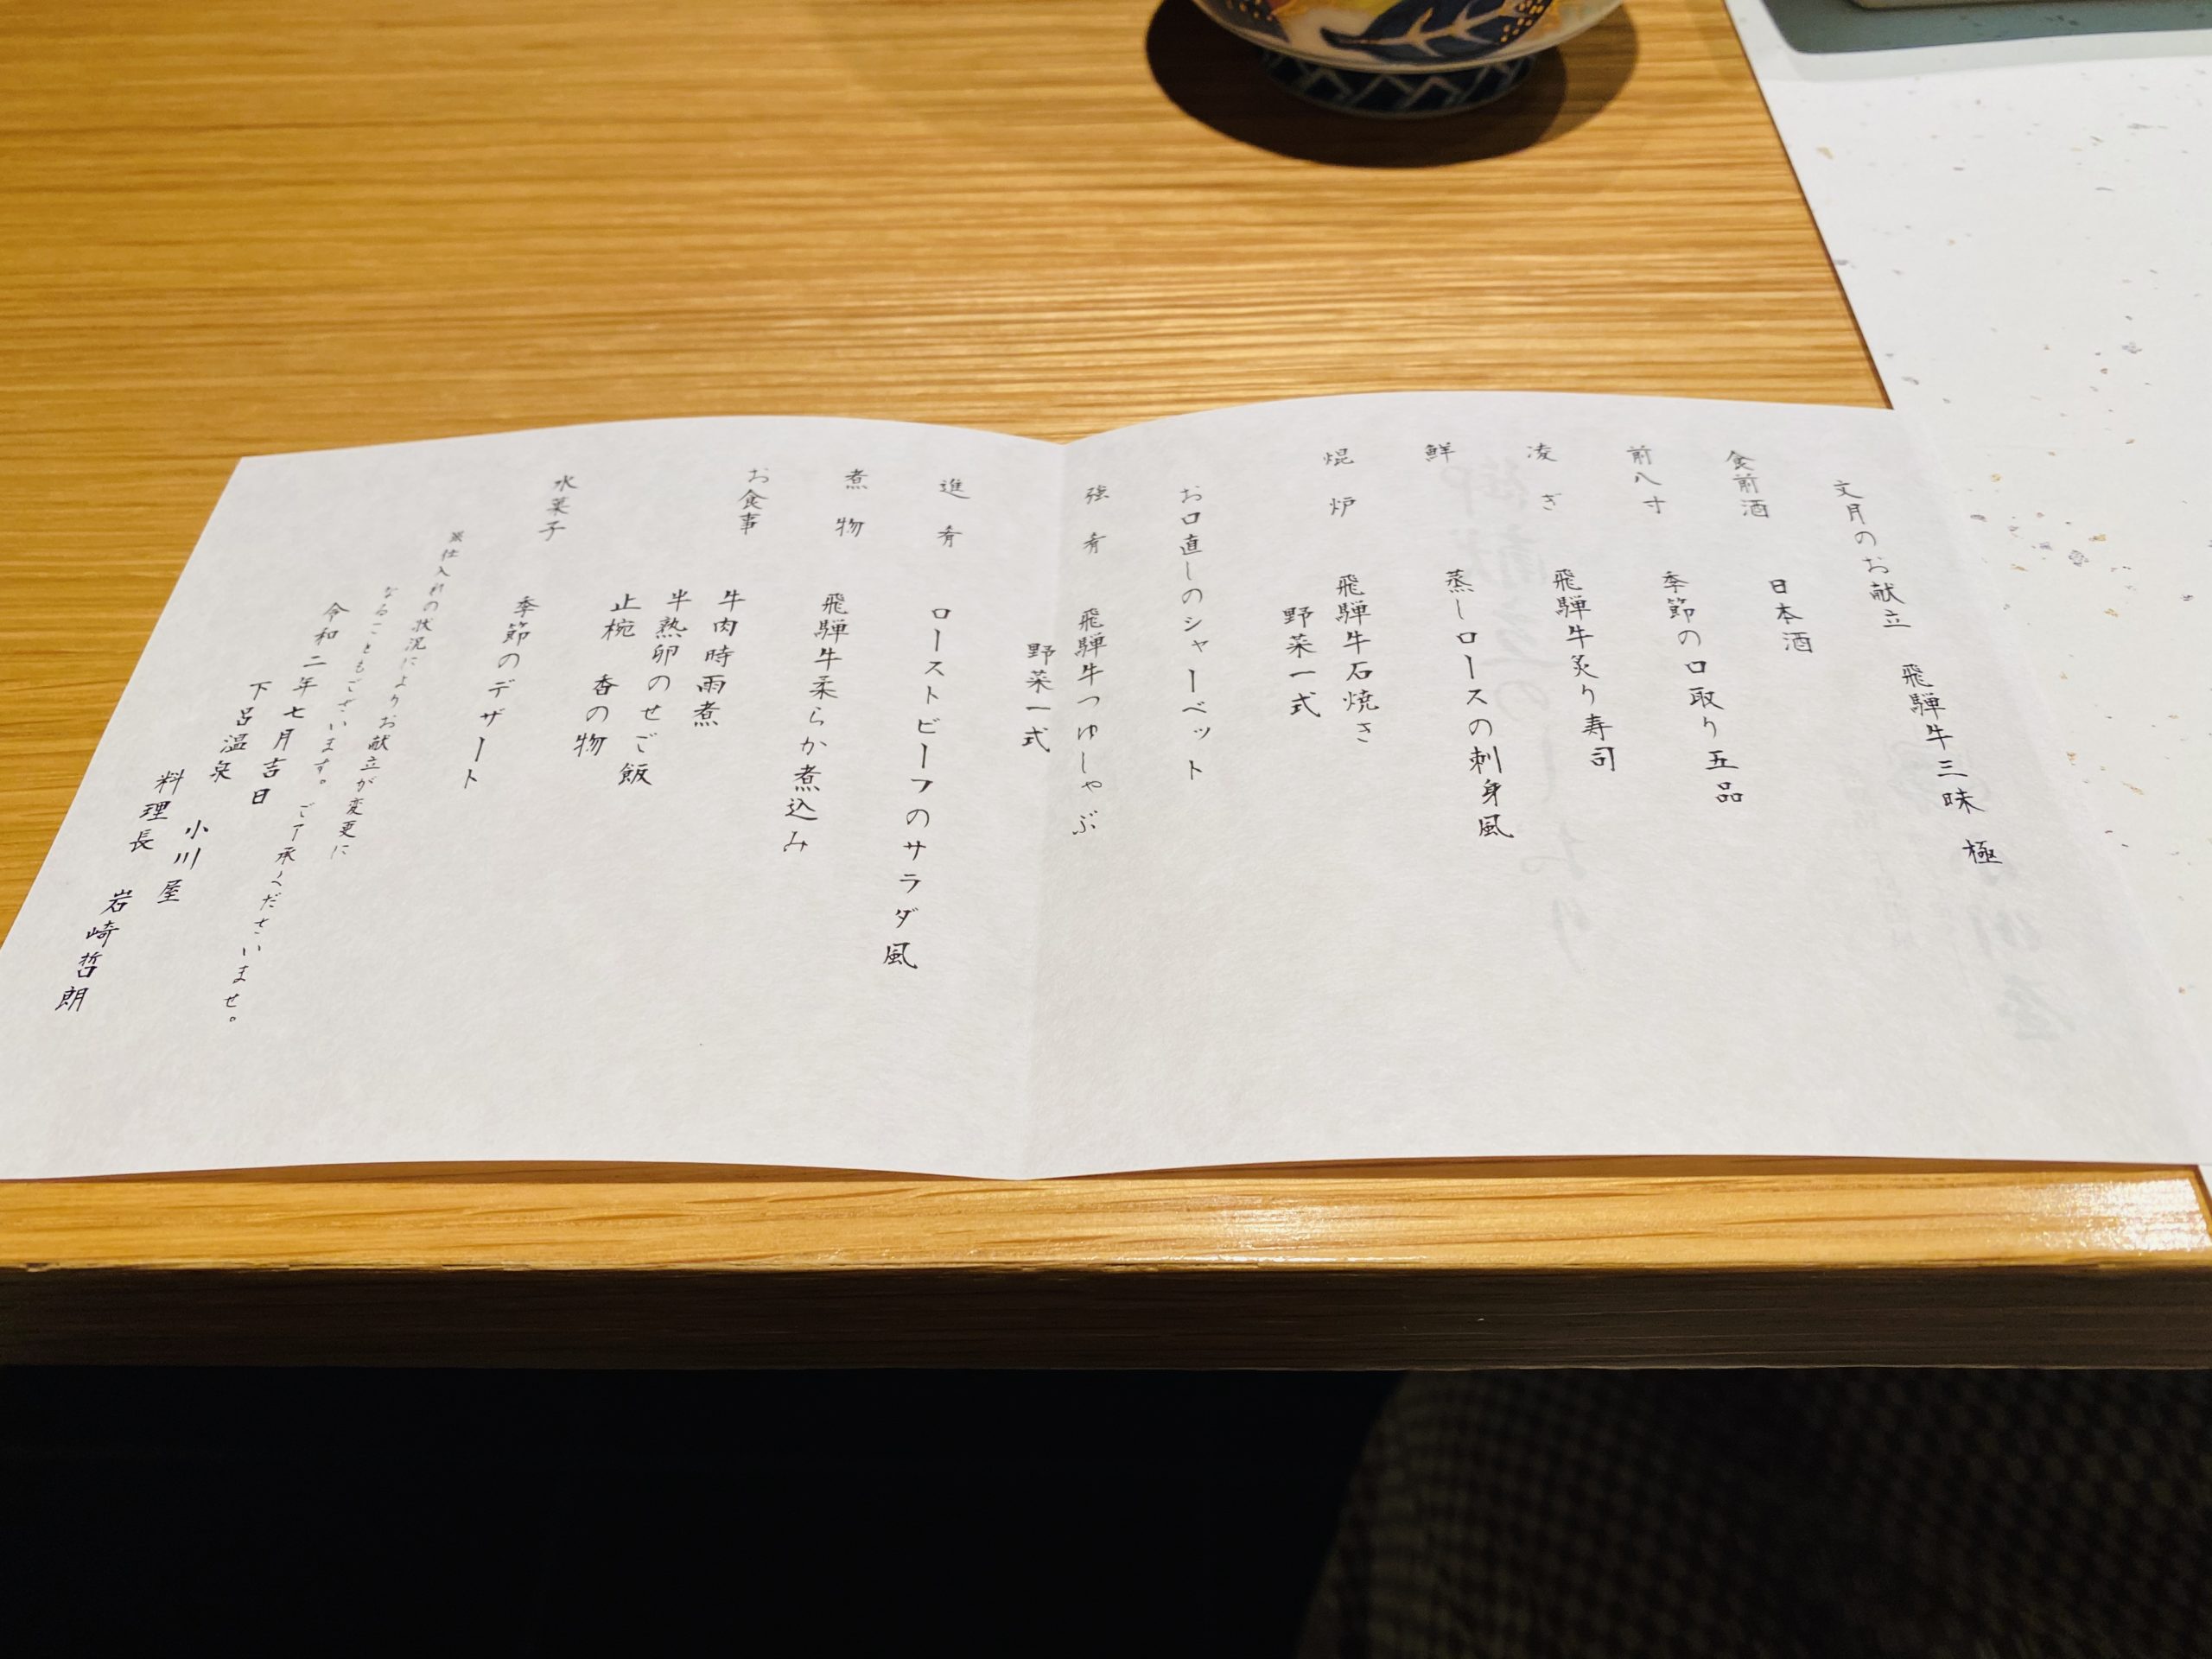 文月のお献立　飛騨牛三昧　極
食前酒　日本酒
前八寸　季節の口取り五品
凌ぎ　飛騨牛炙り寿司
鮮　蒸しロースの刺身風
焜炉　飛騨牛石焼き
野菜一式
お口直しのシャーベット
強肴　飛騨牛つゆしゃぶ
野菜一式
進肴　ローストビーフのサラダ風
煮物　飛騨牛柔らか煮込み
お食事　牛肉時雨煮
半熟卵のせご飯
止椀　香の物
水菓子　季節のデザート
仕入れの状況によりお献立が変更に
なることもございます。ご了承くださいませ。
令和二年七月吉日
下呂温泉　小川屋
料理長　岩崎哲朗